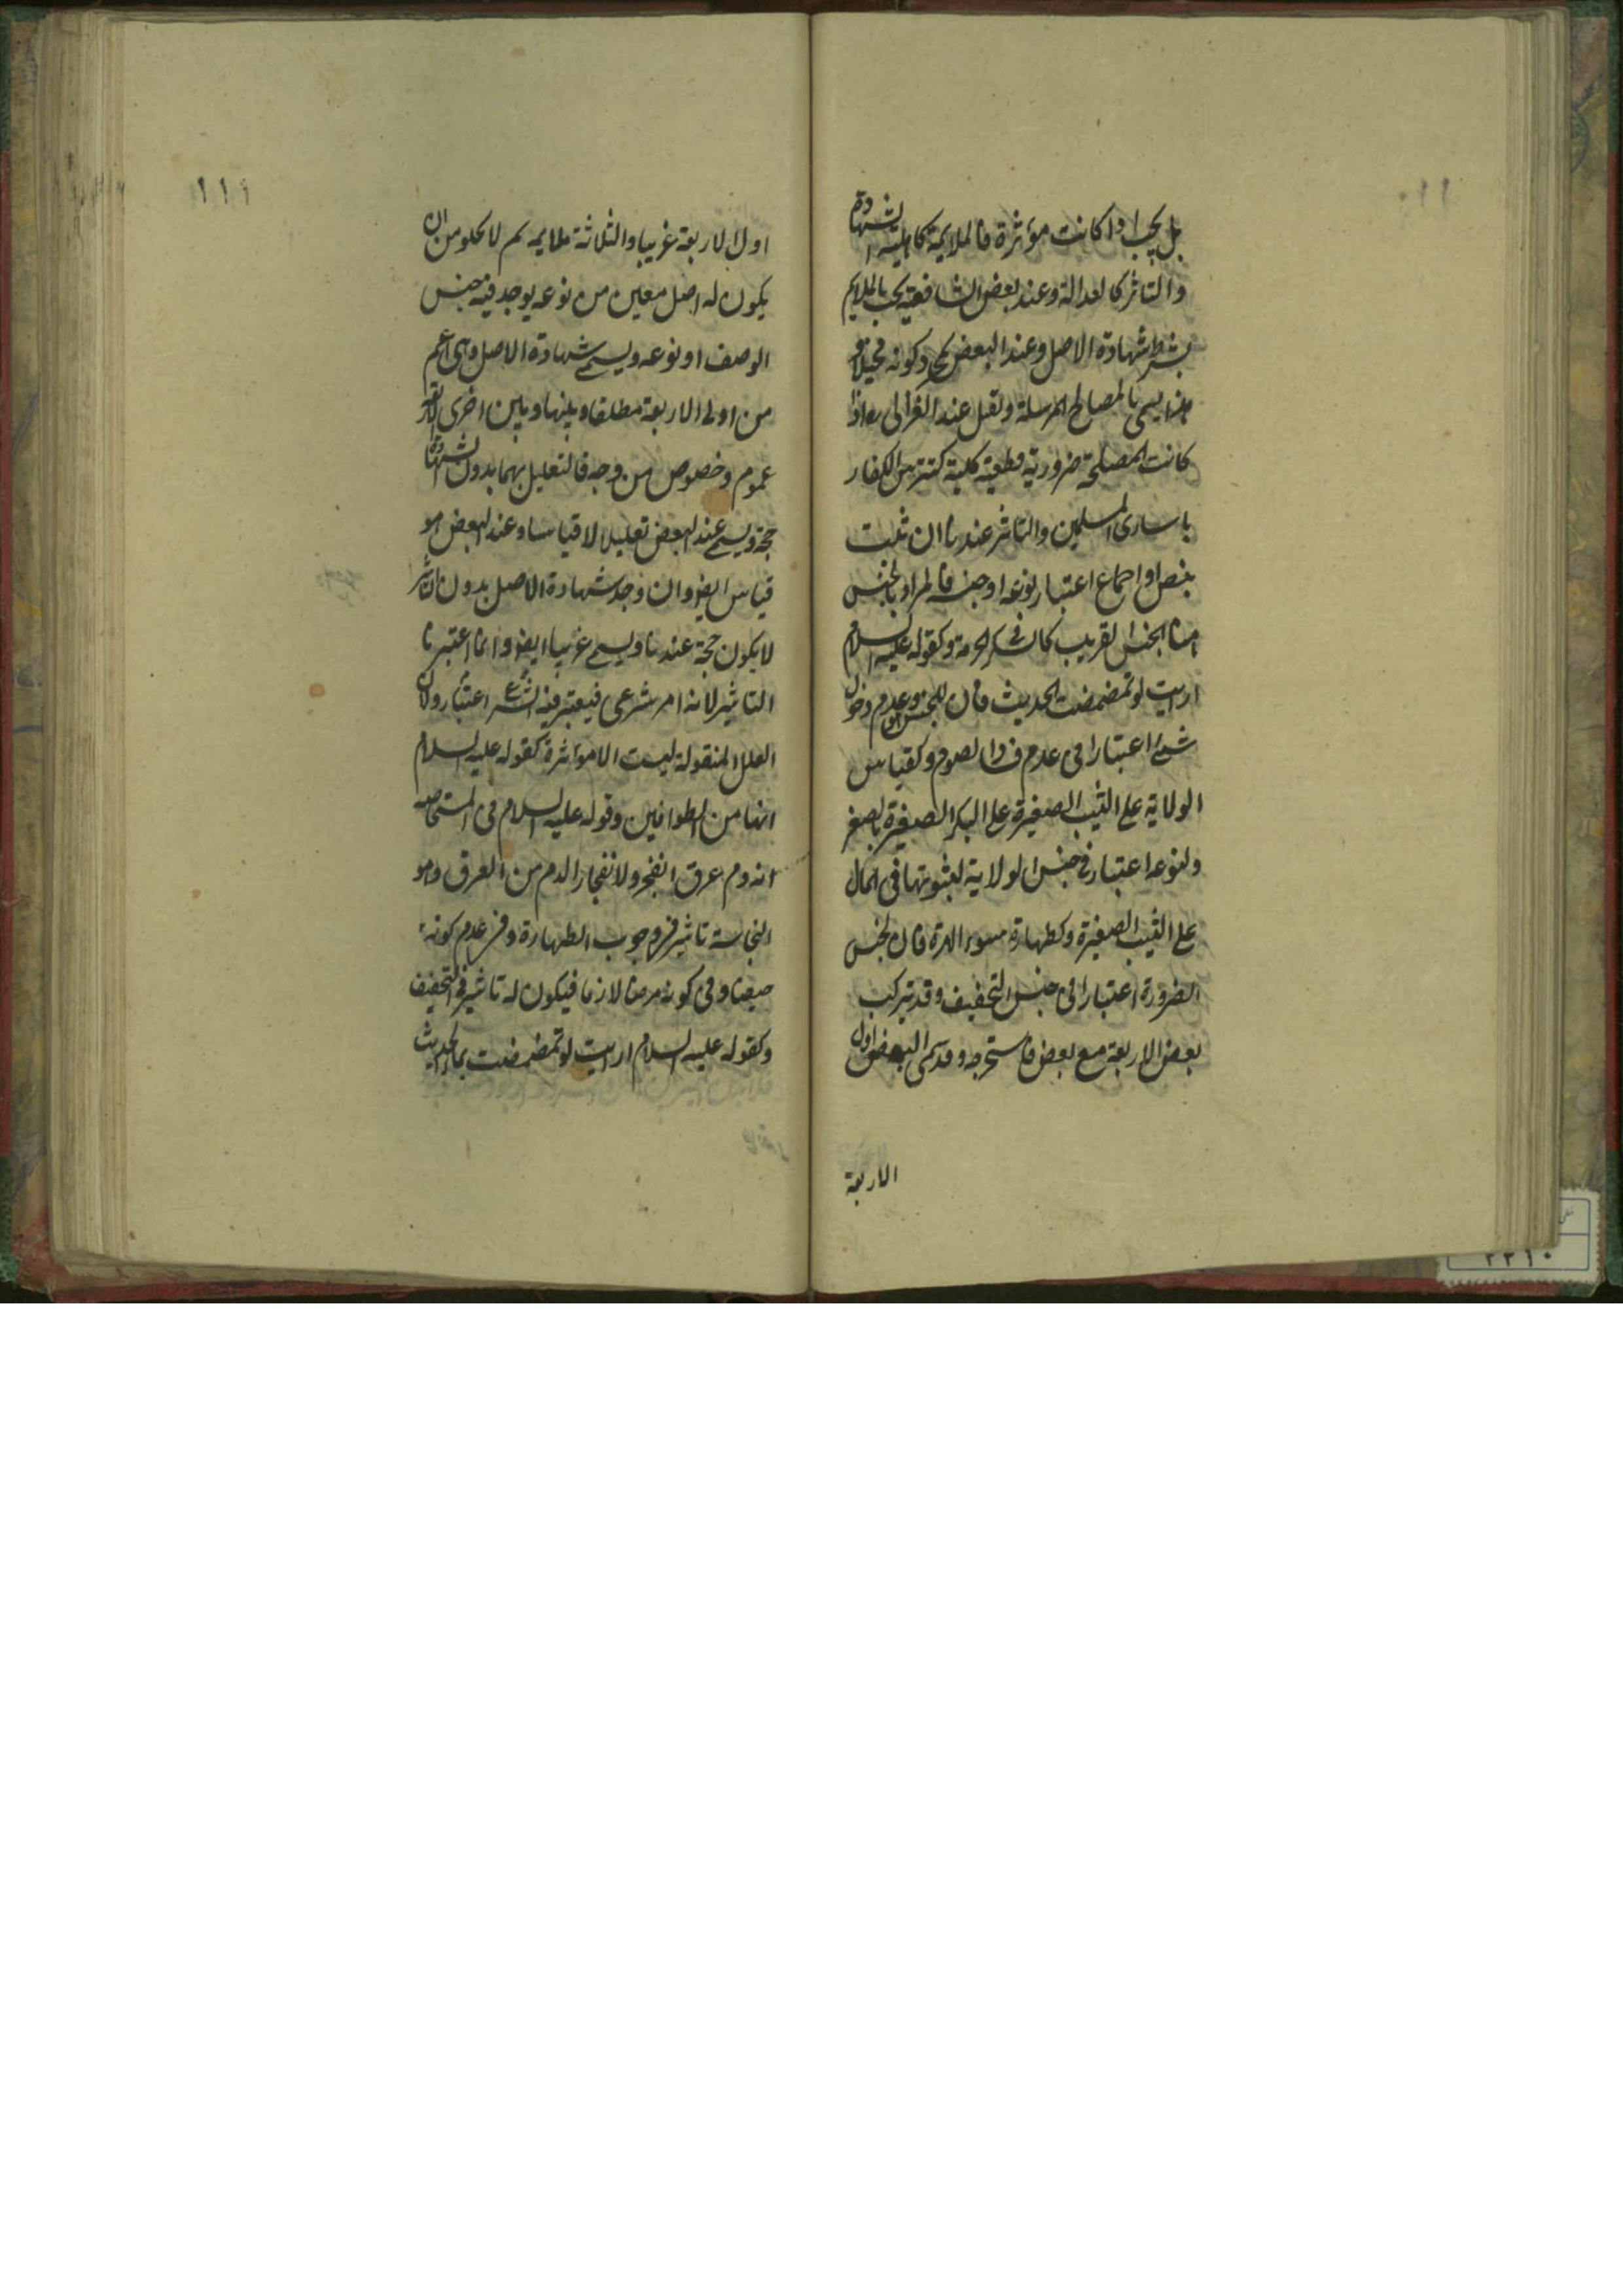 ١١٠
بل يجب اذا كانت مؤثرة فالملايمة كاهلية الشهادة
والتاثر كالعدالة وعند بعض الشافعية يجب بالملايم
بشرط شهادة الاصل وعند البعض بمجرد كونه مخيلا
هذا يسمى بالمصالح المرسلة وتقبل عند الغزالى ره اذا
كانت المصلحة ضرورية قطعية كلية كتترس الكفار
باسارى المسلمين والتاثر عندنا ان ثبت
بنص او اجماع اعتبار نوعه او جنسه فالمراد بالجنس
هنا الجنس القريب كالسكر فى الحرمة وكقوله عليه السلام
ارايت لو تمضمضت الحديث فان للجنس وهو عدم دخول
شئ اعتبارا فى عدم فساد الصوم وكقياس
الولاية على الثيب الصغيرة على البكر الصغيرة بالصغر
ولنوعه اعتبار فى جنس الولاية لثبوتها فى المال
على الثيب الصغيرة وكطهارة سوء الهرة فان لجنس
الضرورة اعتبارا فى جنس التخفيف وقد يتركب
بعض الاربعة مع بعض فاستخرجه وقد سمى البعض اول
الاربعة
١١١
اول الاربعة غريبا والثلاثة ملايمه ثم لا يخلو من ان
يكون له اصل معين من نوعه يوجد فيه جنس
الوصف او نوعه ويسمى شهادة الاصل وهى اعم
من اولى الاربعة مطلقا وبينها وبين اخرى الاربعة
عموم وخصوص من وجه فالتعليل بهما بدون الشهادة
حجة ويسمى عند البعض تعليلا لا قياسا وعند البعض هو
قياس ايضا وان وجد شهادة الاصل بدون التاثر
لا يكون حجة عندنا ويسمى غريبا ايضا وانما اعتبرنا
التاثير لانه امر شرعى فيعتبر فيه الشرع اعتبار ولان
العلل المنقولة ليست الا مؤثرة كقوله عليه السلام
انها من الطوافين وقوله عليه السلام فى المستحاضه
انه دم عرق انفجر ولانفجار الدم من العرق وهو
النجاسة تاثير فى وجوب الطهارة وفى عدم كونه
حيضا وفى كونه مرضا لازما فيكون له تاثير فى التخفيف
وكقوله عليه السلام ارايت لو تمضمضت بماء الحديث
٢٢١٠